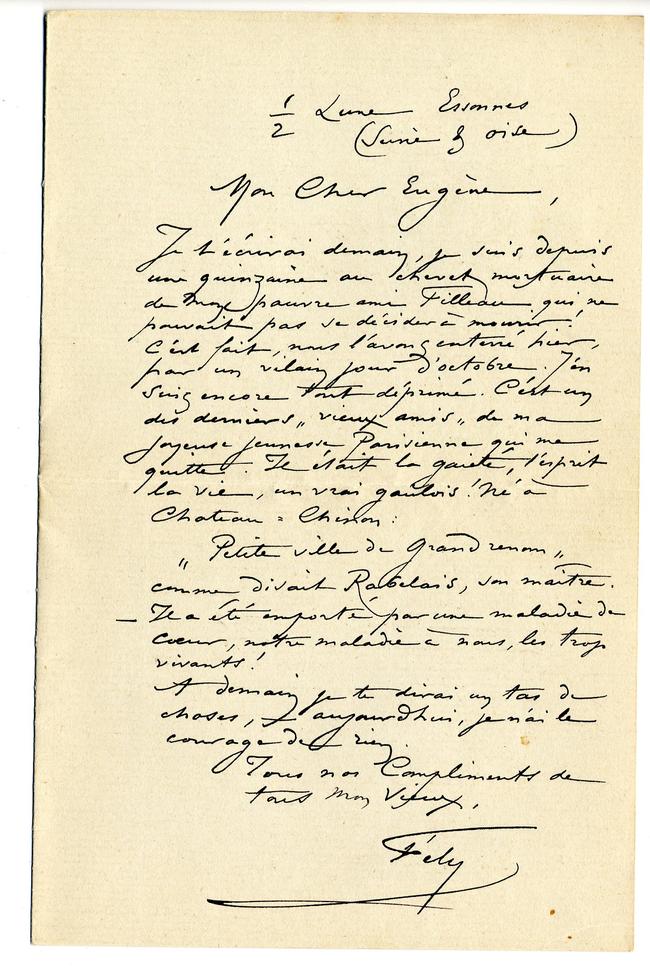 1/2 Lune Essonnes
(Seine & Oise)
Mon Cher Eugène,
Je t'écrirai demain, je suis depuis
une quinzaine au chevet mortuaire
de mon pauvre ami Filleau qui ne
pouvait pas se décider à mourir !
C'est fait, nous l'avons enterré hier,
par un vilain jour d'octobre. J'en
suis encore tout déprimé. C'est un
des derniers „ vieux amis „ de ma
joyeuse jeunesse Parisienne qui me
quitte. Il était la gaieté, l'esprit
la vie, un vrai gaulois ! Né à
Chateau = Chinon :
„ Petite ville de Grand renom „
comme disait Rabelais, son maître.
— Il a été emporté par une maladie de
cœur, notre maladie à nous, les trop
vivants !
A demain je te dirai un tas de
choses, aujourdhui, je n'ai le
courage de rien.
Tous nos Compliments de
tous mon Vieux,
Fély